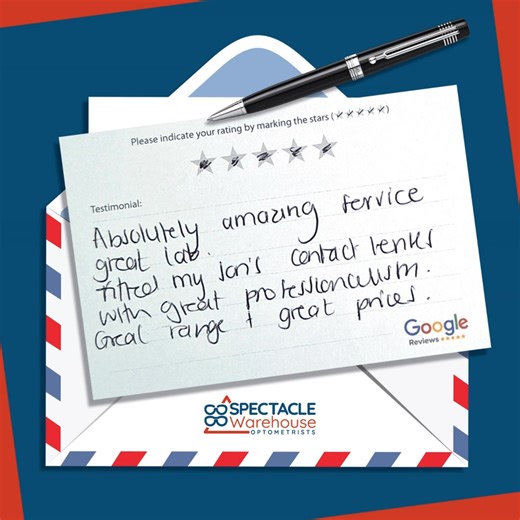 Please indicate your rating by marking the stars (★★★★★)
Testimonial:
Absolutely amazing service
great lab.
fitted my son's contact lenses
with great professionalism.
Great range + great prices.
Google
Reviews ★★★★★
SPECTACLE
Warehouse
OPTOMETRISTS